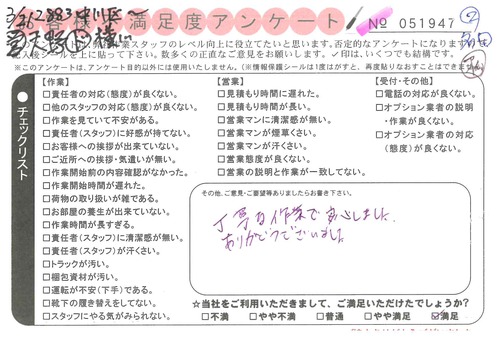 様 満足度アンケート
№ 051947
②
は作業スタッフのレベル向上に役立てたいと思います。否定的なアンケートになります
記入後シールを上に貼って下さい。数多くの正直なご意見をお願いします。㊞は、いくつでも結構です。
※このアンケートは、アンケート目的以外には使用いたしません。(※情報保護シールは1度はがすと、再度貼りなおすことはできません)
チェックリスト
【作業】
□責任者の対応(態度)が良くない。
□他のスタッフの対応(態度)が良くない。
□作業を見ていて不安がある。
□責任者(スタッフ)に好感が持てない。
□お客様への挨拶が出来ていない。
□ご近所への挨拶・気遣いが無い。
□作業開始前の内容確認がなかった。
□作業開始時間が遅れた。
□荷物の取り扱いが雑である。
□お部屋の養生が出来ていない。
□作業時間が長すぎる。
□責任者(スタッフ)に清潔感が無い。
□責任者(スタッフ)が汗くさい。
□トラックが汚い。
□梱包資材が汚い。
□運転が不安(下手)である。
□靴下の履き替えをしてない。
□スタッフにやる気がみられない。
【営業】
□見積もり時間に遅れた。
□見積もり時間が長い。
□営業マンに清潔感が無い。
□営業マンが煙草くさい。
□営業マンが汗くさい。
□営業態度が良くない。
□営業の説明と作業が一致してない。
【受付・その他】
□電話の対応が良くない。
□オプション業者の説明
・作業が良くない。
□オプション業者の対応
(態度)が良くない。
その他、ご意見・ご要望等ありましたらお書き下さい。
丁寧な作業で安心しました。
ありがとうございました
☆当社をご利用いただきまして、ご満足いただけたでしょうか?
□不満 □やや不満 □普通 □やや満足 ☑満足